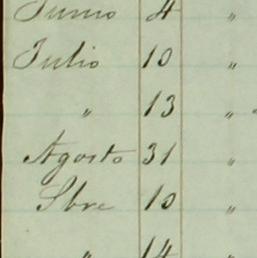 Junio 4 "
Julio 10 "
" 13 "
Agosto 31 "
Sbre 10 "
" 14 "